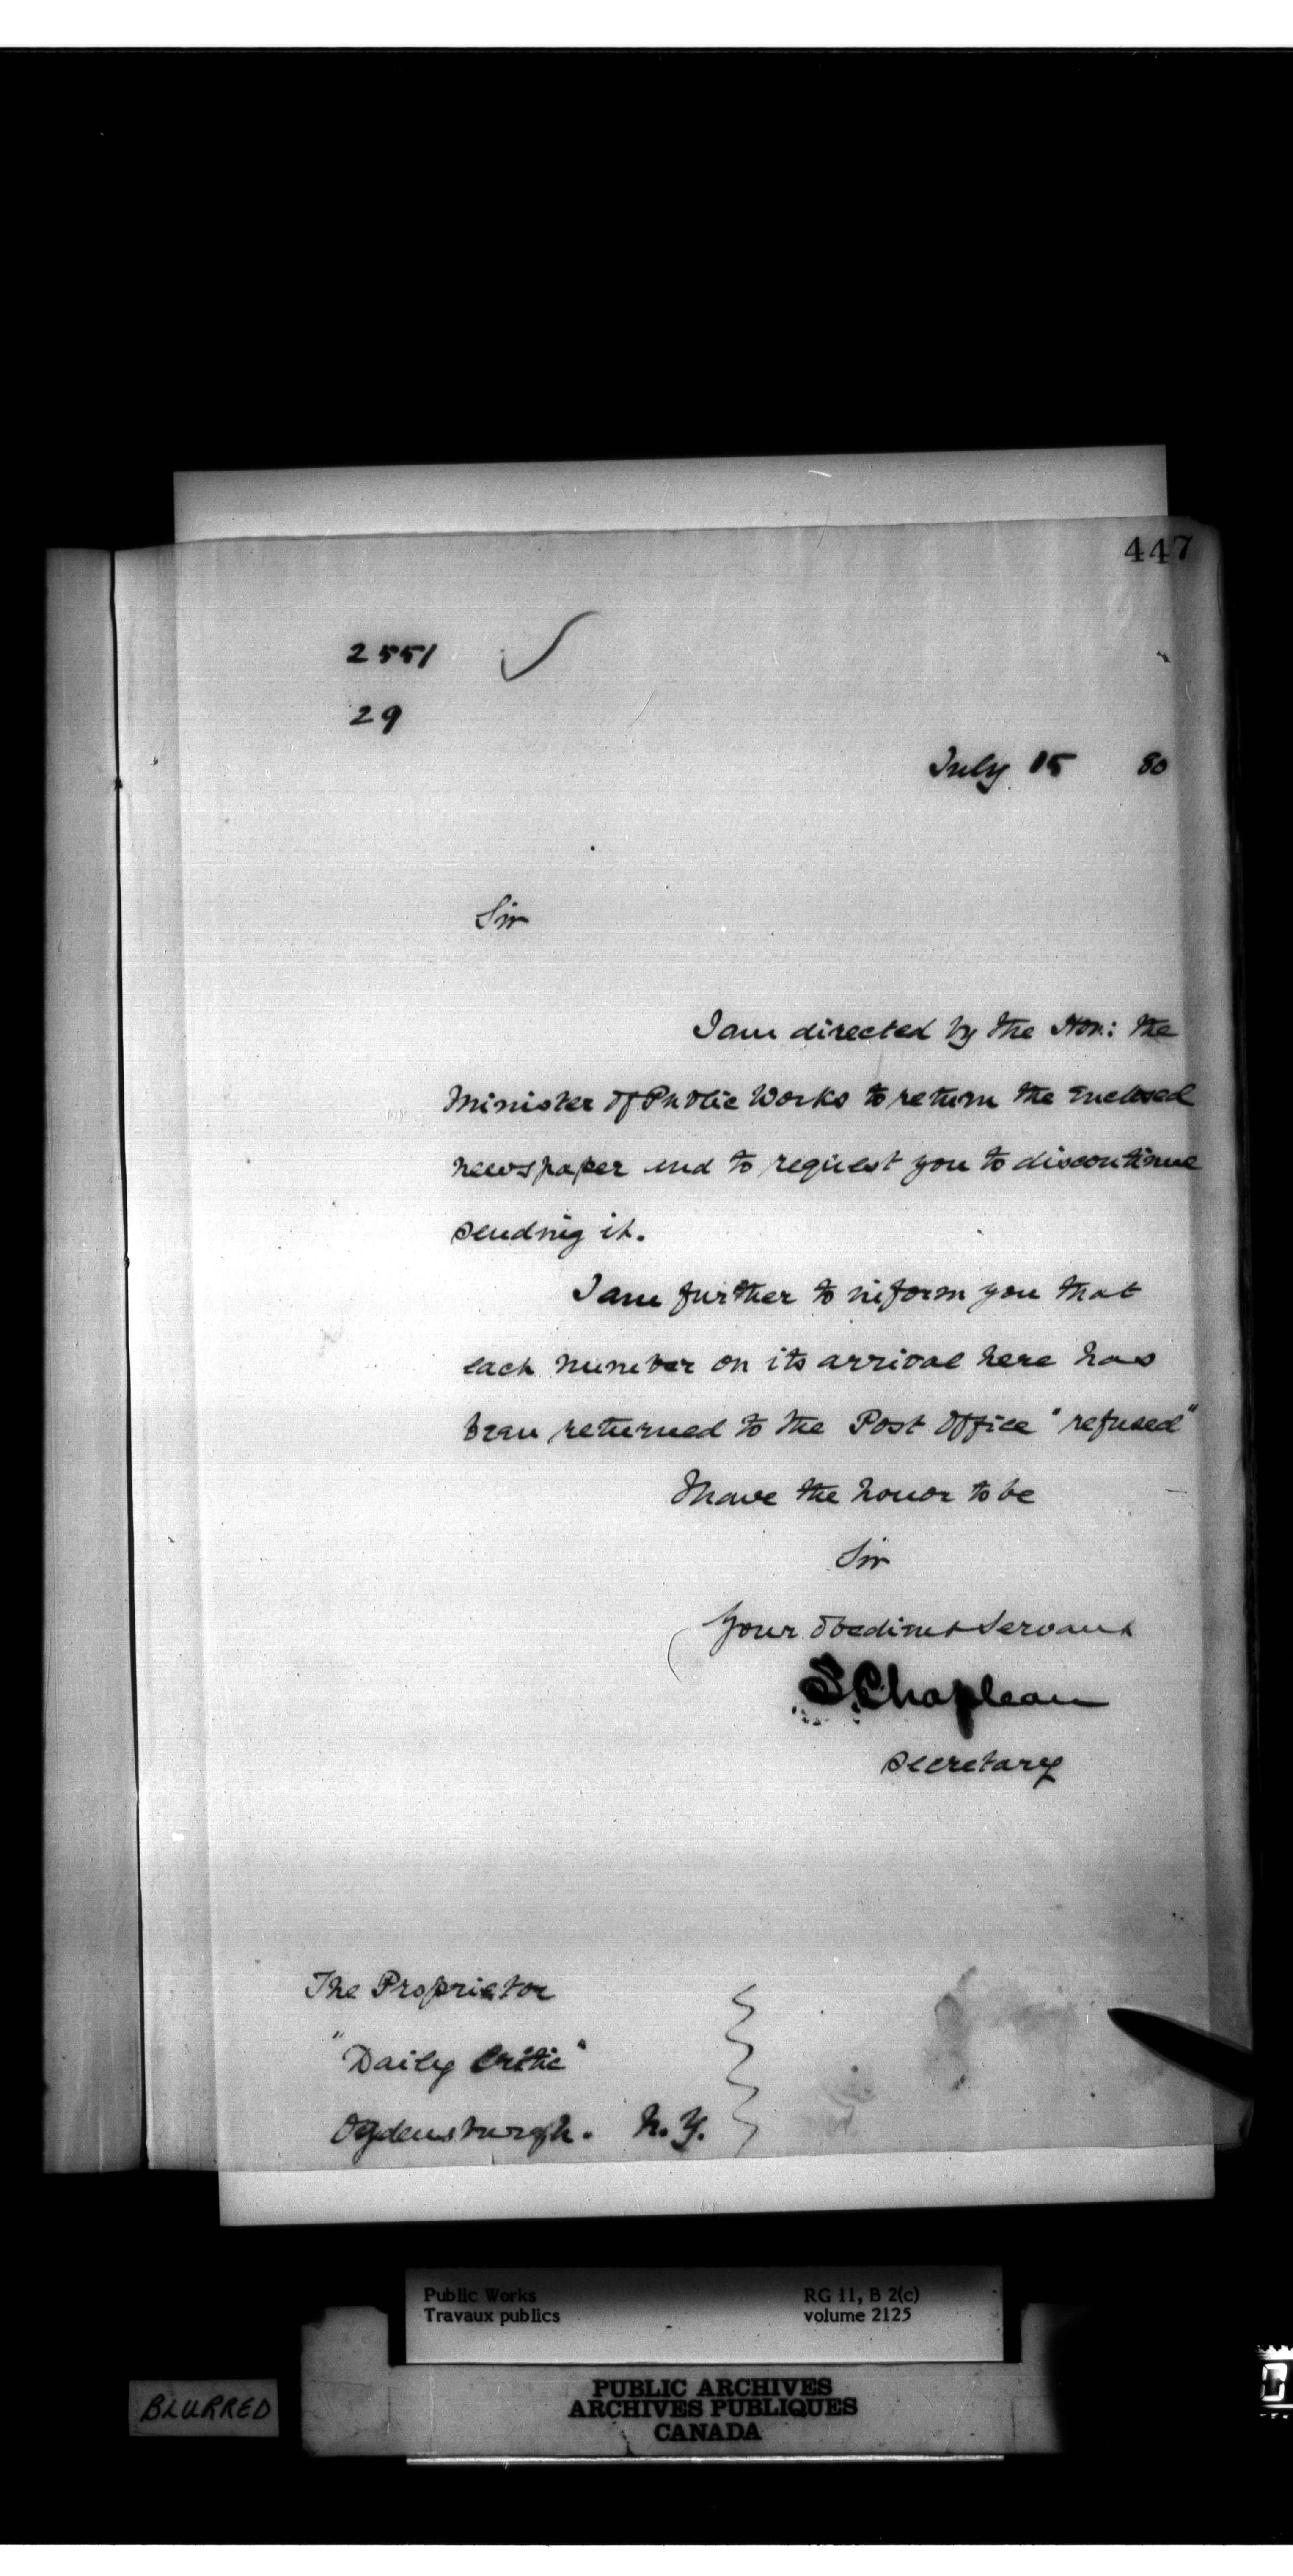 447
2551
29
July 15 80
Sir
I am directed by the Hon: the
Minister of Public Works to return the Enclosed
newspaper and to request you to discontinue
sending it.
I am further to inform you that
each number on its arrival here has
been returned to the Post Office "refused"
I have the honor to be
Sir
Your Obedient Servant
S Chapleau
Secretary
The Proprietor
"Daily Critic"
Ogdensburgh. N.Y.
Public Works RG 11, B 2(c)
Travaux publics volume 2125
BLURRED
PUBLIC ARCHIVES
ARCHIVES PUBLIQUES
CANADA